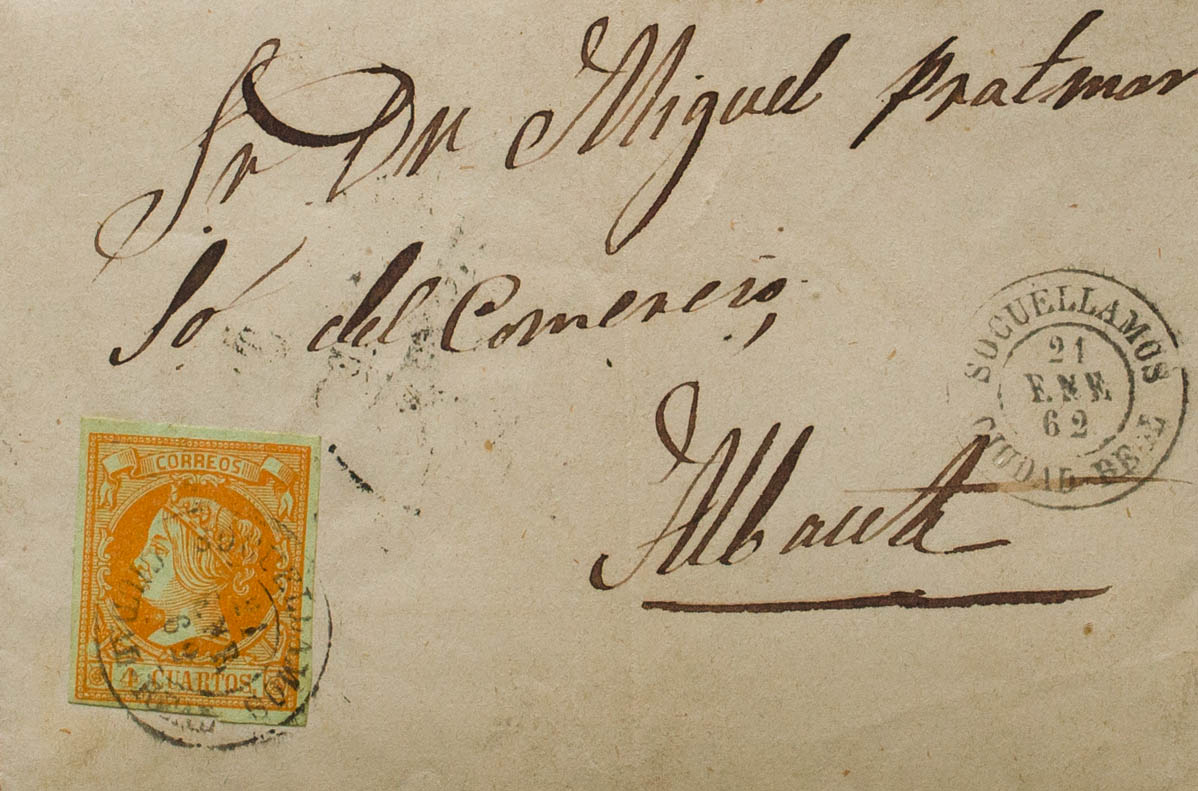 Sr Dn Miguel Pratmar
Só del Comercio,
Albacete
SOCUELLAMOS
21
ENE
62
CIUDAD REAL
CORREOS
4 CUARTOS